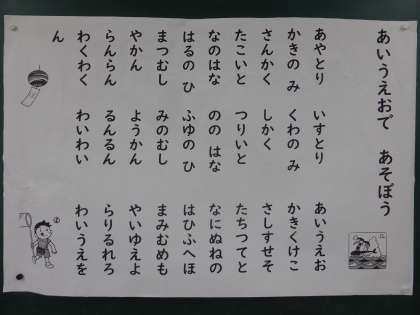 あいうえおで　あそぼう
あやとり　いすとり　あいうえお
かきの み　くわの み　かきくけこ
さんかく　しかく　さしすせそ
たこいと　つりいと　たちつてと
なのはな　のの はな　なにぬねの
はるの ひ　ふゆの ひ　はひふへほ
まつむし　みのむし　まみむめも
やかん　ようかん　やいゆえよ
らんらん　るんるん　らりるれろ
わくわく　わいわい　わいうえを
ん